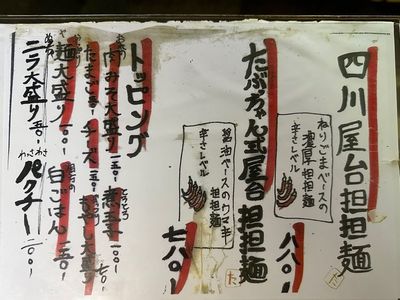 四川屋台担担麺
ねりごまベースの
濃厚担担麺
辛さレベル
八八〇-
た
たぶちゃん式屋台担担麺
醤油ベースのウマ辛
担担麺
辛さレベル
七八〇-
た
トッピング
肉みそ大盛り 一五〇-
煮玉子 一〇〇-
たまごチーズ 五〇-
もやし大盛り 五〇-
麺大盛り 一〇〇-
白ごはん 一五〇-
ニラ大盛り 五〇-
わさわさ
パクチー 二〇〇-